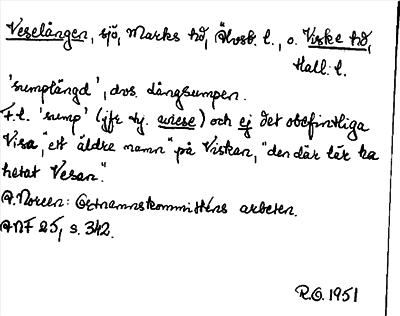 Veselången, sjö, Marks hd, Älvsb. l., o. Viske hd,
Hall. l.
'sumplängd', dvs. långsumpen.
F.l. 'sump' (jfr ty. wiese) och ej det obefintliga
Visa, "ett äldre namn" på Viskan, "den där lär ha
hetat Vesan".
A. Noreen: Ortnamnskommitténs arbeten.
ANF 25, s. 342.
R.O. 1951